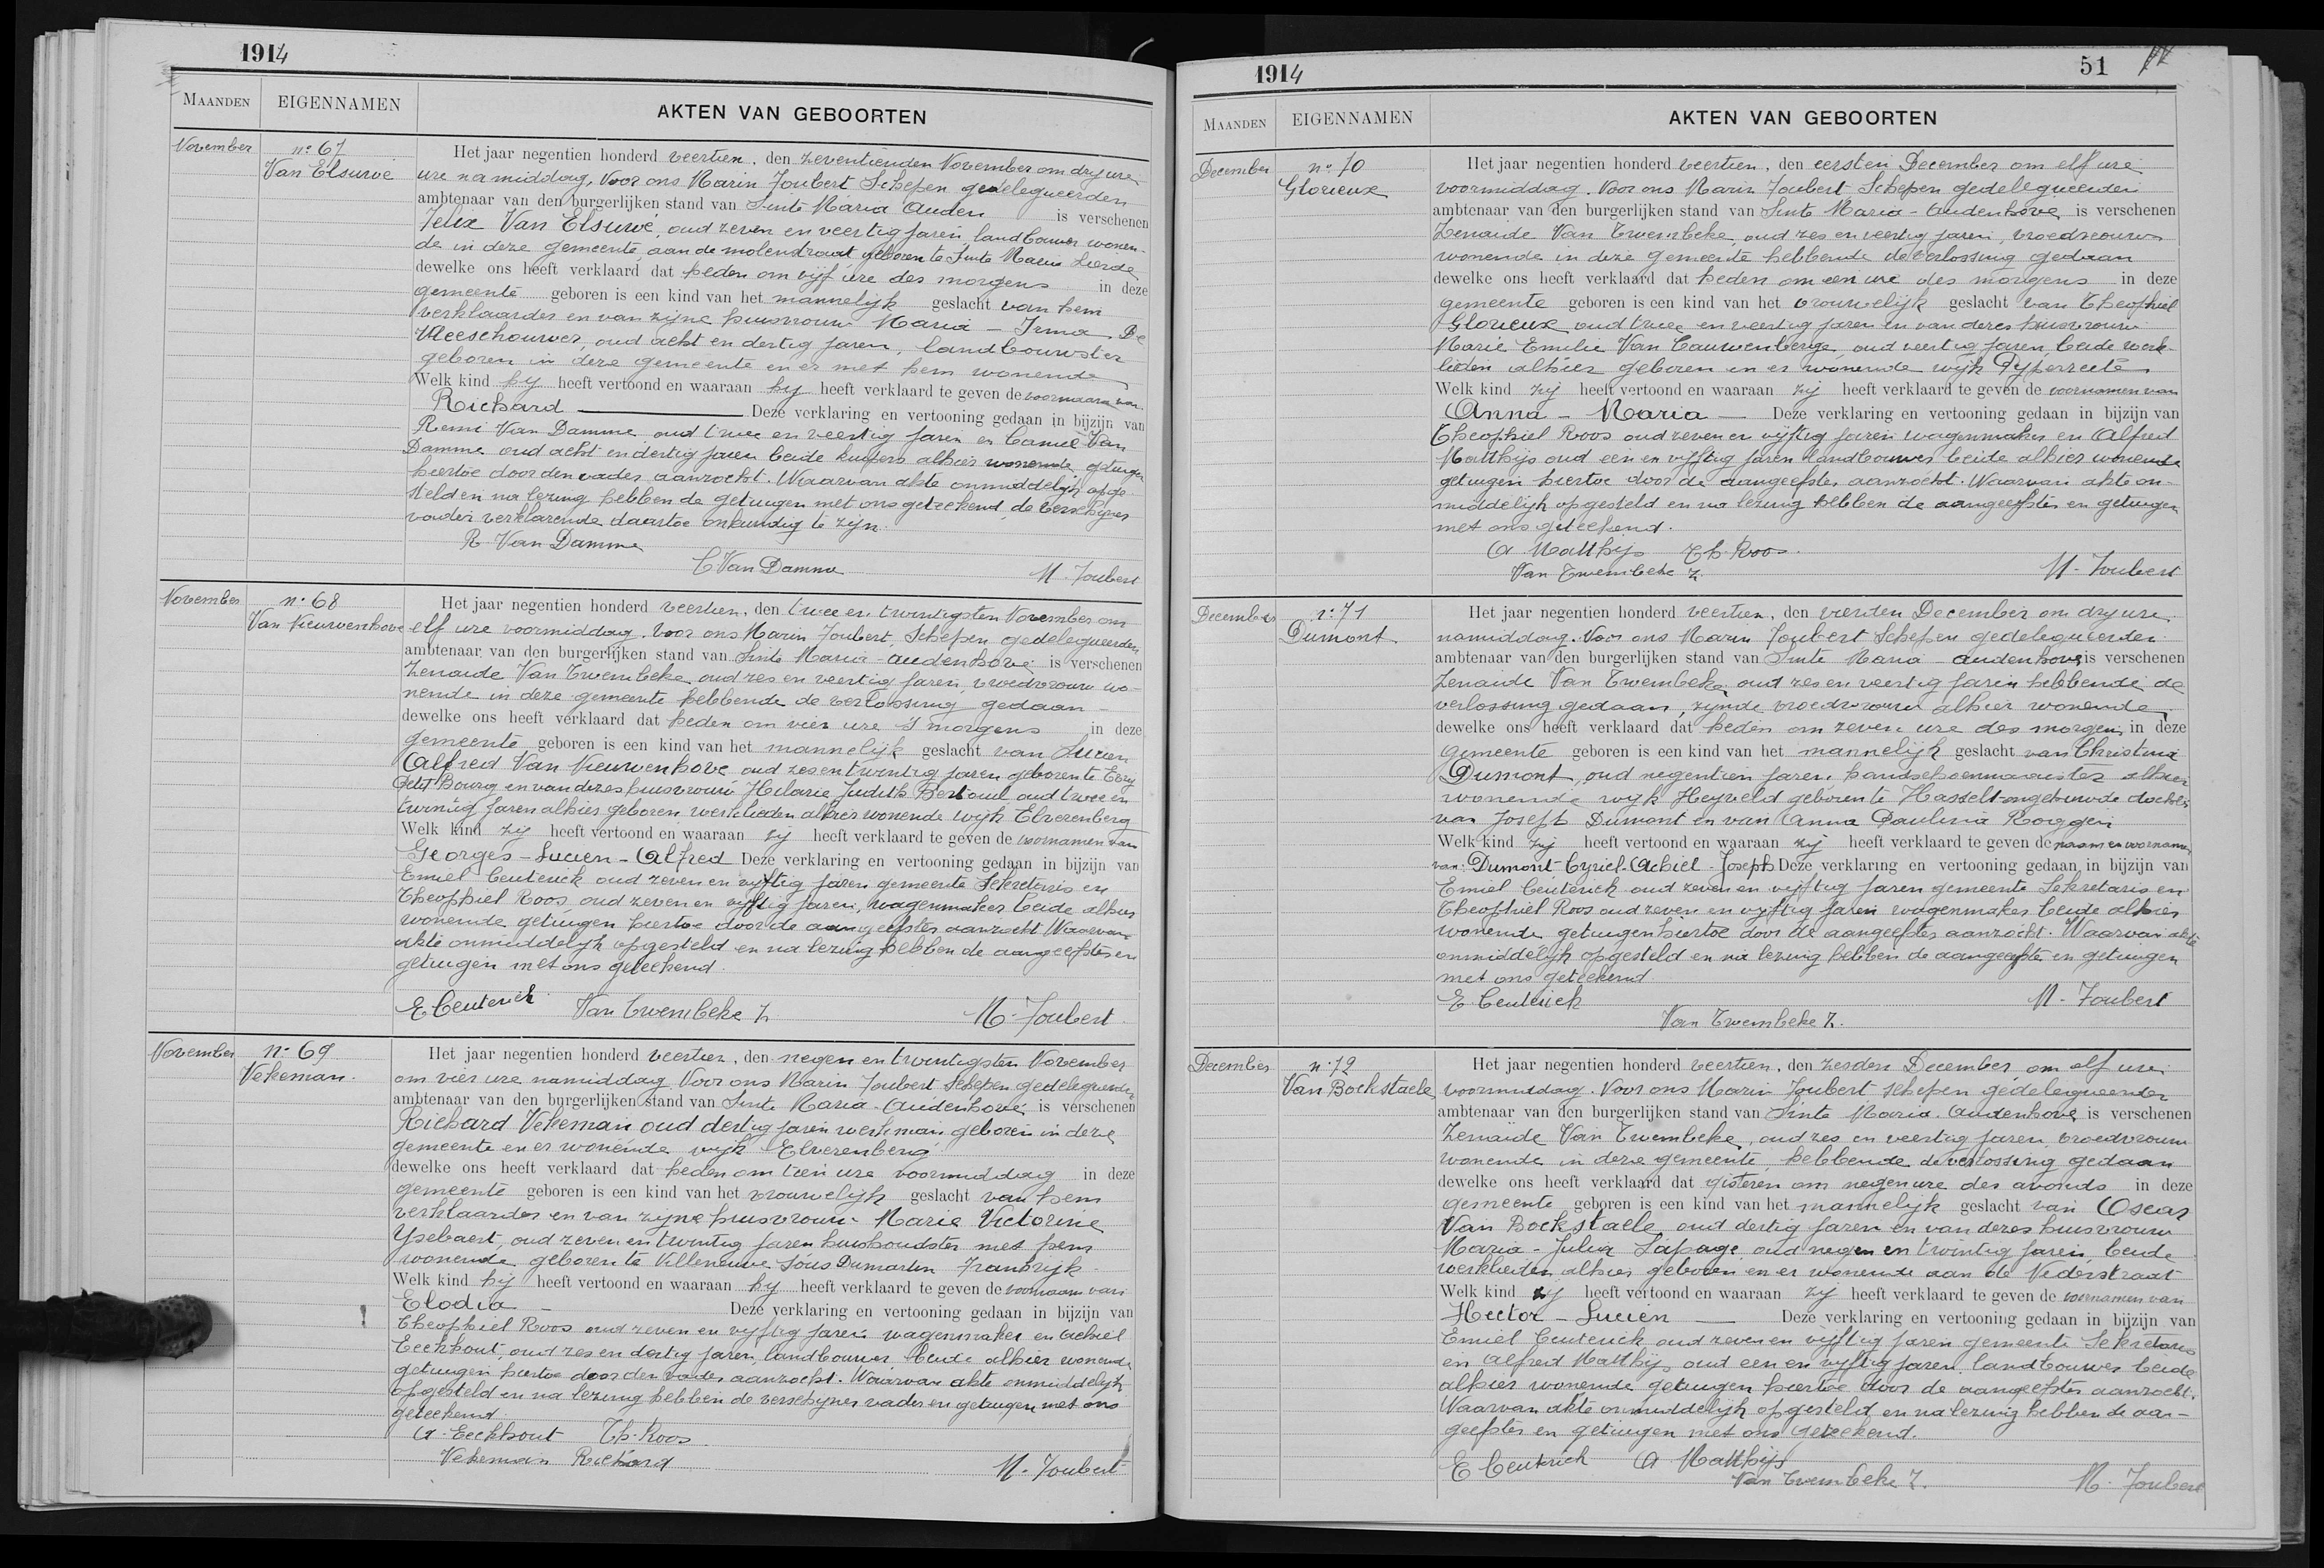 1914
MAANDEN EIGENNAMEN AKTEN VAN GEBOORTEN
November
nº 67
Van Elsuwé
Het jaar negentien honderd veertien, den zeventienden November om dry ure
ure namiddag, Voor ons Marin Joubert Schepen gedelegueerden
ambtenaar van den burgerlijken stand van Sinte Maria Auden is verschenen
Felix Van Elsuwé, oud zeven en veertig jaren, landbouwer wonen-
de in deze gemeente, aan de molenstraat, geboren te Sinte Maria Lierde
dewelke ons heeft verklaard dat heden om vijf ure des morgens in deze
gemeente geboren is een kind van het mannelijk geslacht van hem
verklaarder en van zijne huisvrouw Maria - Irma De
Vleeschouwer, oud acht en dertig jaren, landbouwster
geboren in deze gemeente en er met hem wonende
Welk kind hy heeft vertoond en waaraan hy heeft verklaard te geven de voornaam van
Richard Deze verklaring en vertooning gedaan in bijzijn van
Remi Van Damme oud twee en veertig jaren en Camiel Van
Damme oud acht en dertig jaren beide kuipers alhier wonende getuigen
hiertoe door den vader aanzocht. Waarvan akte onmiddelijk opge-
steld en na lezing hebben de getuigen met ons geteekend, de verschijner
vader verklarende daartoe onkundig te zijn.
R Van Damme
C Van Damme M. Joubert
November
nº 68
Van Nieuwenhove
Het jaar negentien honderd veertien, den twee en twintigsten November om
elf ure voormiddag. Voor ons Marin Joubert, Schepen gedelegueerden
ambtenaar van den burgerlijken stand van Sinte Maria-Audenhove is verschenen
Zenaide Van Twembeke oud zes en veertig jaren, vroedvrouw wo-
nende in deze gemeente hebbende de verlossing gedaan
dewelke ons heeft verklaard dat heden om vier ure 's morgens in deze
gemeente geboren is een kind van het mannelijk geslacht van Lucien
Alfred Van Nieuwenhove oud zes en twintig jaren geboren te Evry
Petit Bourg en van dezes huisvrouw Hilarie Judith Bertoul oud twee en
twintig jaren alhier geboren werklieden alhier wonende wijk Elverenberg
Welk kind zy heeft vertoond en waaraan zij heeft verklaard te geven de voornamen van
Georges - Lucien - Alfred Deze verklaring en vertooning gedaan in bijzijn van
Emiel Ceuterick oud zeven en vijftig jaren gemeente Sekretaris en
Theophiel Roos, oud zeven en vijftig jaren, wagenmaker beide alhier
wonende getuigen hiertoe door de aangeefster aanzocht Waarvan
akte onmiddelijk opgesteld en na lezing hebben de aangeefster en
getuigen met ons geteekend.
E Ceuterick Van Twembeke Z M. Joubert
November
nº 69
Vekeman
Het jaar negentien honderd veertien, den negen en twintigsten November
om vier ure namiddag Voor ons Marin Joubert Schepen gedelegueerden
ambtenaar van den burgerlijken stand van Sinte Maria-Audenhove is verschenen
Richard Vekeman oud dertig jaren werkman geboren in deze
gemeente en er wonende wijk Elverenberg
dewelke ons heeft verklaard dat heden om tien ure voormiddag in deze
gemeente geboren is een kind van het vrouwelijk geslacht van hem
verklaarder en van zijne huisvrouw Marie Victorine
Ysebaert, oud zeven en twintig jaren huishoudster met hem
wonende geboren te Villeneuve Sous Dumartin Frankrijk
Welk kind hij heeft vertoond en waaraan hy heeft verklaard te geven de voornaam van
Elodia Deze verklaring en vertooning gedaan in bijzijn van
Theophiel Roos oud zeven en vijftig jaren wagenmaker en Achiel
Eeckhout, oud zes en dertig jaren landbouwer beide alhier wonende
getuigen hiertoe door den vader aanzocht. Waarvan akte onmiddelijk
opgesteld en na lezing hebben de verschijner vader en getuigen met ons
geteekend
A. Eeckhout Th. Roos
Vekeman Richard M. Joubert
1914 51
MAANDEN EIGENNAMEN AKTEN VAN GEBOORTEN
December
nº 70
Glorieux
Het jaar negentien honderd veertien, den eersten December om elf ure
voormiddag. Voor ons Marin Joubert Schepen gedelegueerden
ambtenaar van den burgerlijken stand van Sinte Maria-Audenhove is verschenen
Zenaide Van Twembeke, oud zes en veertig jaren, vroedvrouw
wonende in deze gemeente hebbende de verlossing gedaan
dewelke ons heeft verklaard dat heden om een ure des morgens in deze
gemeente geboren is een kind van het vrouwelijk geslacht van Theophiel
Glorieux oud twee en veertig jaren en van dezes huisvrouw
Marie Emilie Van Cauwenberge, oud veertig jaren, beide werk-
lieden alhier geboren en er wonende wijk Dyferreele
Welk kind zij heeft vertoond en waaraan zij heeft verklaard te geven de voornamen van
Anna - Maria Deze verklaring en vertooning gedaan in bijzijn van
Theophiel Roos oud zeven en vijftig jaren wagenmaker en Alfred
Matthijs oud een en vijftig jaren landbouwer beide alhier wonende
getuigen hiertoe door de aangeefster aanzocht. Waarvan akte on-
middelijk opgesteld en na lezing hebben de aangeefster en getuigen
met ons geteekend.
A Matthijs Th. Roos
Van Twembeke Z. M. Joubert
December
nº 71
Dumont
Het jaar negentien honderd veertien, den vierden December om dry ure
namiddag. Voor ons Marin Joubert Schepen gedelegueerden
ambtenaar van den burgerlijken stand van Sinte Maria Audenhove is verschenen
Zenaide Van Twembeke oud zes en veertig jaren hebbende de
verlossing gedaan, zijnde vroedvrouw alhier wonende
dewelke ons heeft verklaard dat heden om zeven ure des morgens in deze
gemeente geboren is een kind van het mannelijk geslacht van Christina
Dumont, oud negentien jaren, handschoenmaakster alhier
wonende wyk Heyveld geboren te Hasselt ongehuwde dochter
van Joseph Dumont en van Anna Paulina Roggen
Welk kind zij heeft vertoond en waaraan zij heeft verklaard te geven de naam en voornamen
van Dumont Cyriel-Achiel-Joseph Deze verklaring en vertooning gedaan in bijzijn van
Emiel Ceuterick oud zeven en vijftig jaren gemeente Sekretaris en
Theophiel Roos oud zeven en vijftig jaren wagenmaker beide alhier
wonende getuigen hiertoe door de aangeefster aanzocht. Waarvan akte
onmiddelijk opgesteld en na lezing hebben de aangeefster en getuigen
met ons geteekend
E Ceuterick M. Joubert
Van Twembeke Z.
December
nº 72
Van Bockstaele
Het jaar negentien honderd veertien, den zesden December om elf ure
voormiddag. Voor ons Marin Joubert schepen gedelegueerden
ambtenaar van den burgerlijken stand van Sinte Maria Audenhove is verschenen
Zenaïde Van Twembeke, oud zes en veertig jaren vroedvrouw
wonende in deze gemeente, hebbende de verlossing gedaan
dewelke ons heeft verklaard dat gisteren om negen ure des avonds in deze
gemeente geboren is een kind van het mannelijk geslacht van Oscar
Van Bockstaele oud dertig jaren en van dezes huisvrouw
Maria-Julia Lapage oud negen en twintig jaren beide
werklieden alhier geboren en er wonende aan de Nederstraat
Welk kind zij heeft vertoond en waaraan zij heeft verklaard te geven de voornamen van
Hector - Lucien Deze verklaring en vertooning gedaan in bijzijn van
Emiel Ceuterick oud zeven en vijftig jaren gemeente Sekretaris
en Alfred Matthijs oud een en vijftig jaren landbouwer beide
alhier wonende getuigen hiertoe door de aangeefster aanzocht.
Waarvan akte onmiddelijk opgesteld en na lezing hebben de aan-
geefster en getuigen met ons geteekend.
E Ceuterick A Matthijs
Van Twembeke Z. M. Joubert